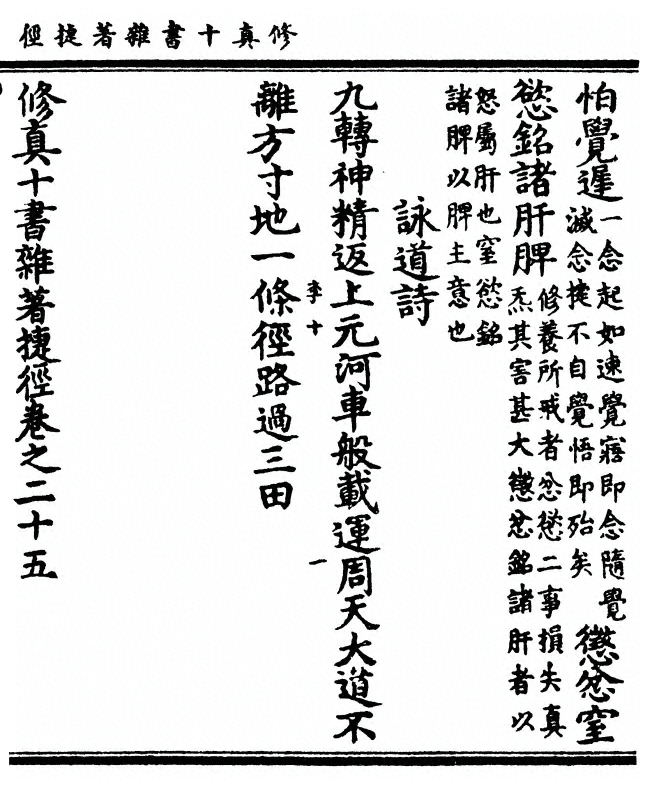 修真十書雜著捷徑
怕覺遲一念起如速覺寤即念隨覺
滅念捷不自覺悟即殆矣懲忿窒
慾銘諸肝脾修養所戒者忿慾二事損失真
炁其害甚大懲忿銘諸肝者以
怒屬肝也窒慾銘
諸脾以脾主意也
詠道詩
九轉神精返上元河車般載運周天大道不
李十 一
離方寸地一條徑路過三田
修真十書雜著捷徑卷之二十五